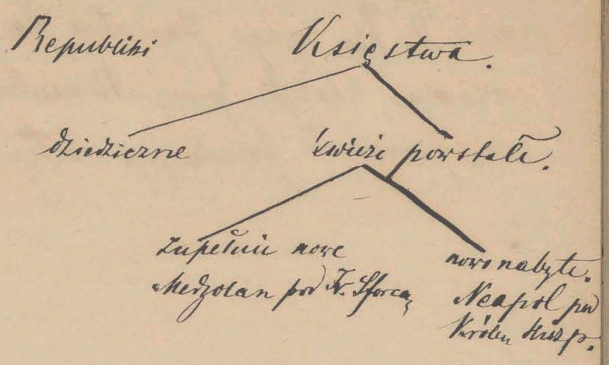 Republiki
Księstwa.
dziedziczne
świeżo powstałe.
zupełnie nowe
Medyolan pod Fr. Sforcą
nowo nabyte.
Neapol pod
Królem Hiszp.